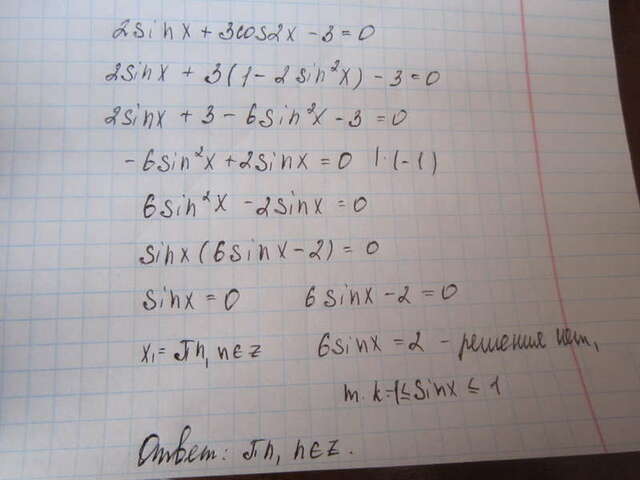 2sinx + 3cos2x - 3 = 0
2sinx + 3(1 - 2sin²x) - 3 = 0
2sinx + 3 - 6sin²x - 3 = 0
- 6sin²x + 2sinx = 0 | · (-1)
6sin²x - 2sinx = 0
sinx (6sinx - 2) = 0
sinx = 0 6sinx - 2 = 0
x₁ = πn, n∈z 6sinx = 2 - решения нет,
т. к. -1 ≤ sinx ≤ 1
Ответ: πn, n∈z.